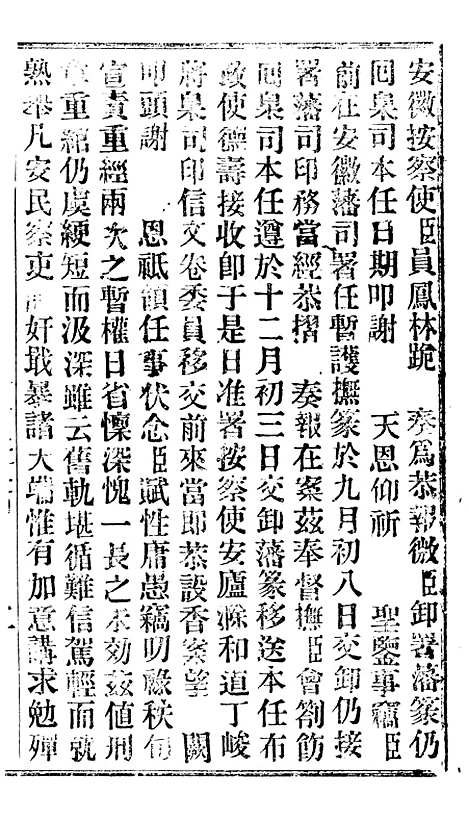 安徽按察使臣員鳳林跪　奏爲恭報微臣卸署藩篆仍
回臬司本任日期叩謝　天恩仰祈　聖鑒事竊臣
前在安徽藩司署任暫護撫篆於九月初八日交卸仍接
署藩司印務當經恭摺　奏報在案茲奉督撫臣會劄飭
回臬司本任遵於十二月初三日交卸藩篆移送本任布
政使德壽接收卽于是日准署按察使安廬滁和道丁峻
將臬司印信文卷委員移交前來當卽恭設香案望　闕
叩頭謝　恩祇領任事伏念臣賦性庸愚竊叨祿秩旬
宣責重經兩次之暫權日省懍深愧一長之未効茲値刑
章重綰仍虞綆短而汲深雖云舊軌堪循難信駕輕而就
熟舉凡安民察吏奸戢暴諸大端惟有加意講求勉殫